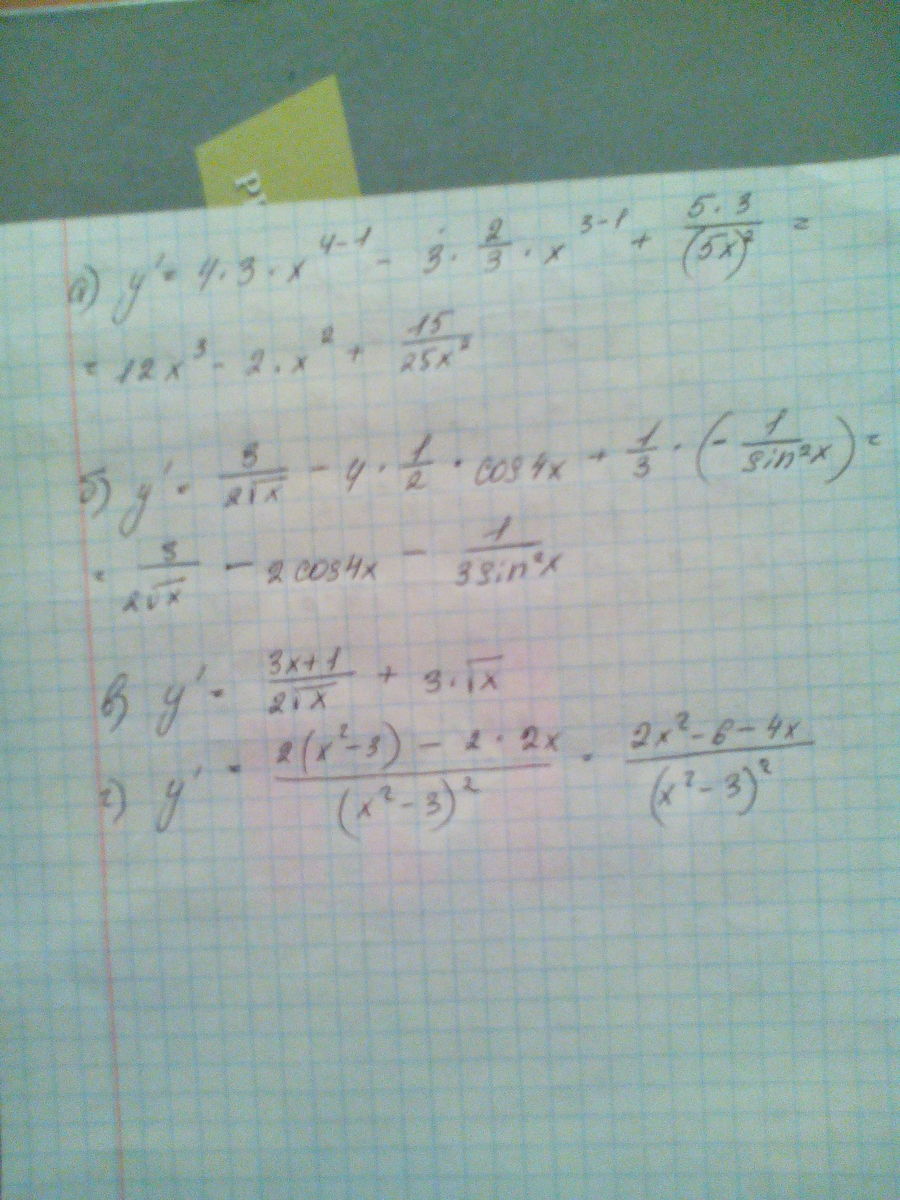 а) y' = 4 · 3 · x^{4-1} - 3 · \frac{2}{3} · x^{3-1} + \frac{5 · 3}{(5x)^2} =
= 12x^3 - 2 · x^2 + \frac{15}{25x^2}
б) y' = \frac{3}{2\sqrt{x}} - 4 · \frac{1}{2} · cos4x + \frac{1}{3} · (-\frac{1}{sin^2x}) =
= \frac{3}{2\sqrt{x}} - 2 cos4x - \frac{1}{3sin^2x}
в) y' = \frac{3x+1}{2\sqrt{x}} + 3 · \sqrt{x}
г) y' = \frac{2(x^2-3) - 2 · 2x}{(x^2-3)^2} = \frac{2x^2-6-4x}{(x^2-3)^2}